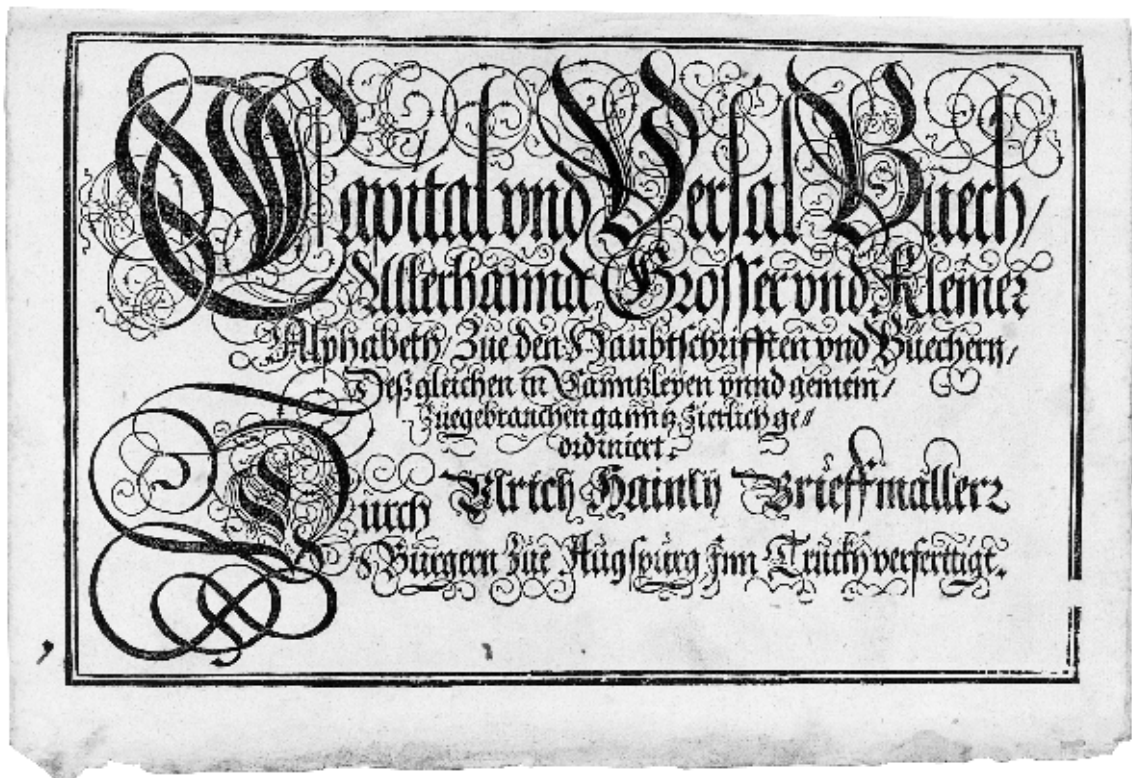 Capital vnd Versal Buech/
Allerhannd Grosser vnd Kleiner
Alphabeth/ Zue den Haubtschrifften vnd Büechern/
Deßgleichen in Canntzleyen vnnd gemein/
Zuegebrauchen ganntz Zierlich ge⸗
ordiniert.
Durch Vlrich Hainly Brieffmallerz
Burgern zue Augspurg Jnn Truckh verferttigt.